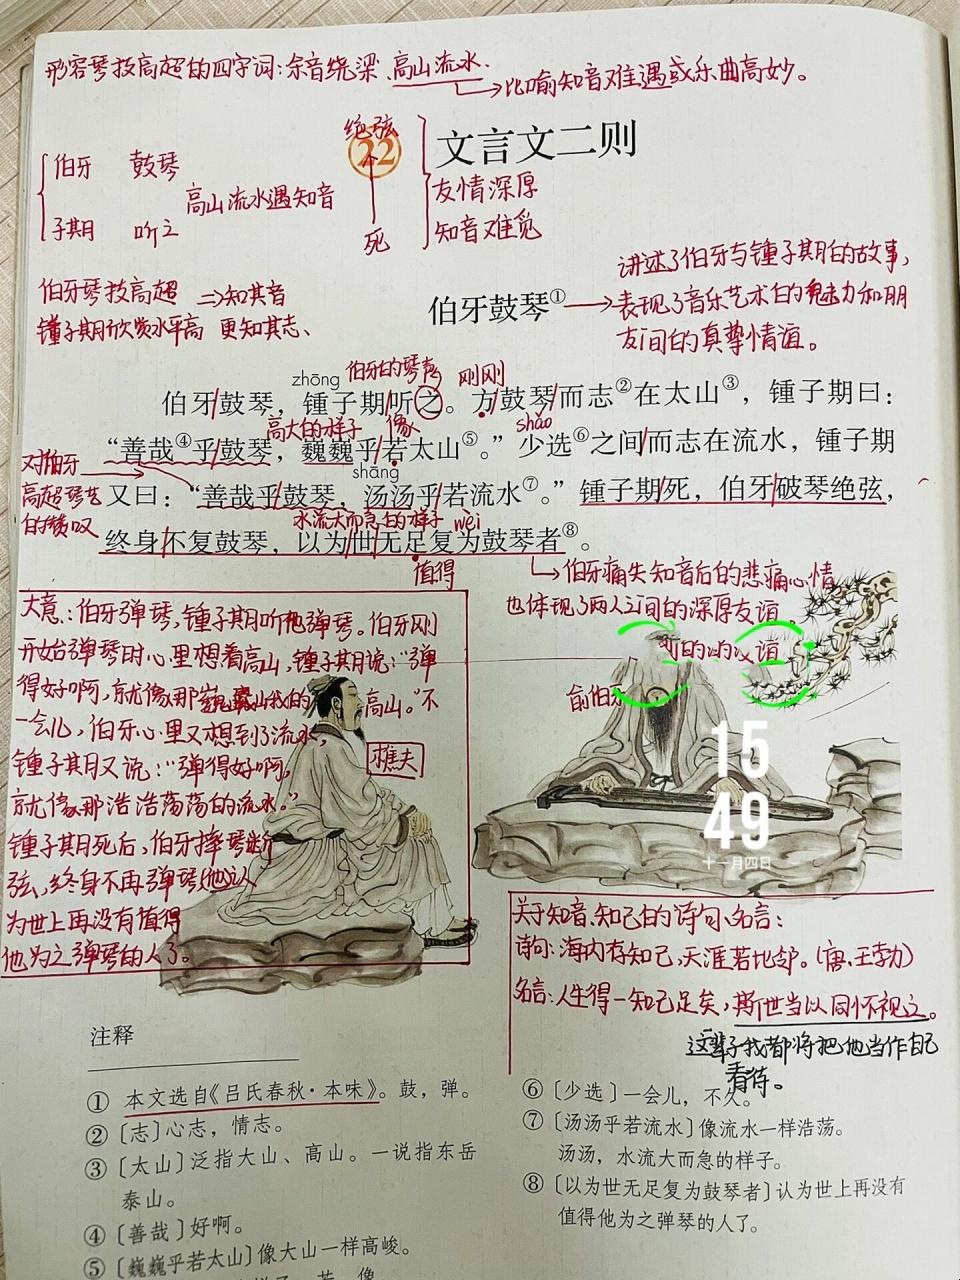 形容琴技高超的四字词:余音绕梁、高山流水.
→比喻知音难遇或乐曲高妙。
绝弦
22
文言文二则
伯牙 鼓琴
友情深厚
高山流水遇知音
子期 听之
知音难觅
死
讲述了伯牙与锺子期的故事,
伯牙琴技高超 ⇒知其音
伯牙鼓琴①
→表现了音乐艺术的魅力和朋
锺子期欣赏水平高 更知其志、
友间的真挚情谊。
zhōng
伯牙的琴声
刚刚
伯牙/鼓琴,锺子期/听之。方/鼓琴/而志②在太山③,锺子期曰:
高大的样子
像
shǎo
“善哉④乎/鼓琴,巍巍乎/若太山⑤。”少选⑥之间/而志在流水,锺子期
对伯牙
高超琴艺
的赞叹
shāng
又曰:“善哉乎/鼓琴,汤汤乎/若流水⑦。”锺子期/死,伯牙/破琴绝弦,
水流大而急的样子
wèi
终身/不复鼓琴,以为/世无足复为鼓琴者⑧。
值得
→伯牙痛失知音后的悲痛心情
也体现了两人之间的深厚友谊。
大意:伯牙弹琴,锺子期听他弹琴。伯牙刚
开始弹琴时心里想着高山,锺子期说:“弹
得好啊,就像那巍巍 高山。”不
一会儿,伯牙心里又想到了流水,
锺子期又说:“弹得好啊,
就像那浩浩荡荡的流水。”
锺子期死后,伯牙摔琴断
弦,终身不再弹琴,他认
为世上再没有值得
他为之弹琴的人了。
樵夫
俞伯
15
49
十一月四日
关于知音、知己的诗句、名言:
诗句:海内存知己,天涯若比邻。(唐.王勃)
名言:人生得一知己足矣,斯世当以同怀视之。
这辈子我都将把他当作自己
看待。
注释
① 本文选自《吕氏春秋·本味》。鼓,弹。
②〔志〕心志,情志。
③〔太山〕泛指大山、高山。一说指东岳
泰山。
④〔善哉〕好啊。
⑤〔巍巍乎若太山〕像大山一样高峻。
⑥〔少选〕一会儿,不久。
⑦〔汤汤乎若流水〕像流水一样浩荡。
汤汤,水流大而急的样子。
⑧〔以为世无足复为鼓琴者〕认为世上再没有
值得他为之弹琴的人了。